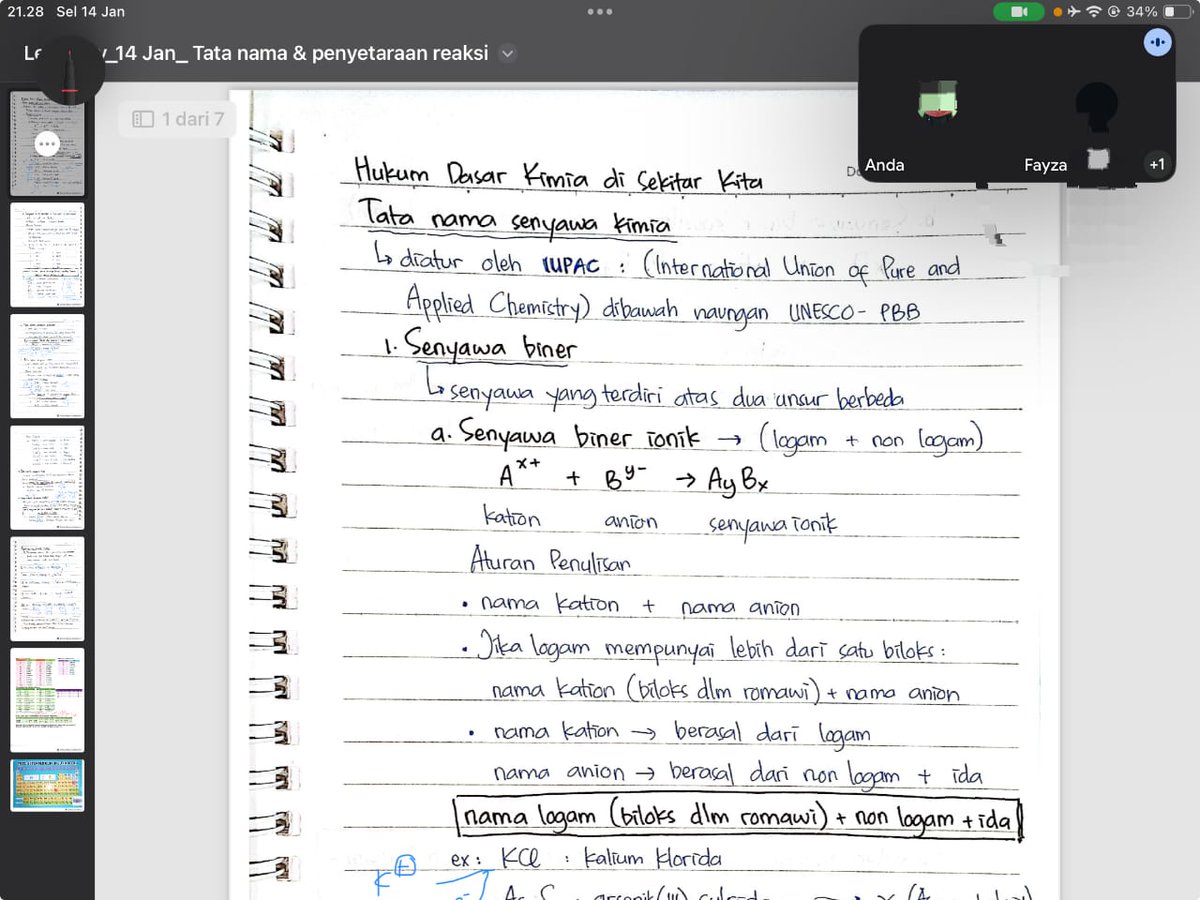 21.28 Sel 14 Jan
34%
_14 Jan_ Tata nama & penyetaraan reaksi
1 dari 7
Anda
Fayza
+1
Hukum Dasar Kimia di Sekitar Kita
Tata nama senyawa kimia
↳ diatur oleh IUPAC : (International Union of Pure and
Applied Chemistry) dibawah naungan UNESCO - PBB
1. Senyawa biner
↳ senyawa yang terdiri atas dua unsur berbeda
a. Senyawa biner ionik → (logam + non logam)
Aˣ⁺ + Bʸ⁻ → AyBx
kation anion senyawa ionik
Aturan Penulisan
• nama kation + nama anion
• Jika logam mempunyai lebih dari satu biloks :
nama kation (biloks dlm romawi) + nama anion
• nama kation → berasal dari logam
nama anion → berasal dari non logam + ida
nama logam (biloks dlm romawi) + non logam + ida
ex : KCl : kalium klorida
K⁺